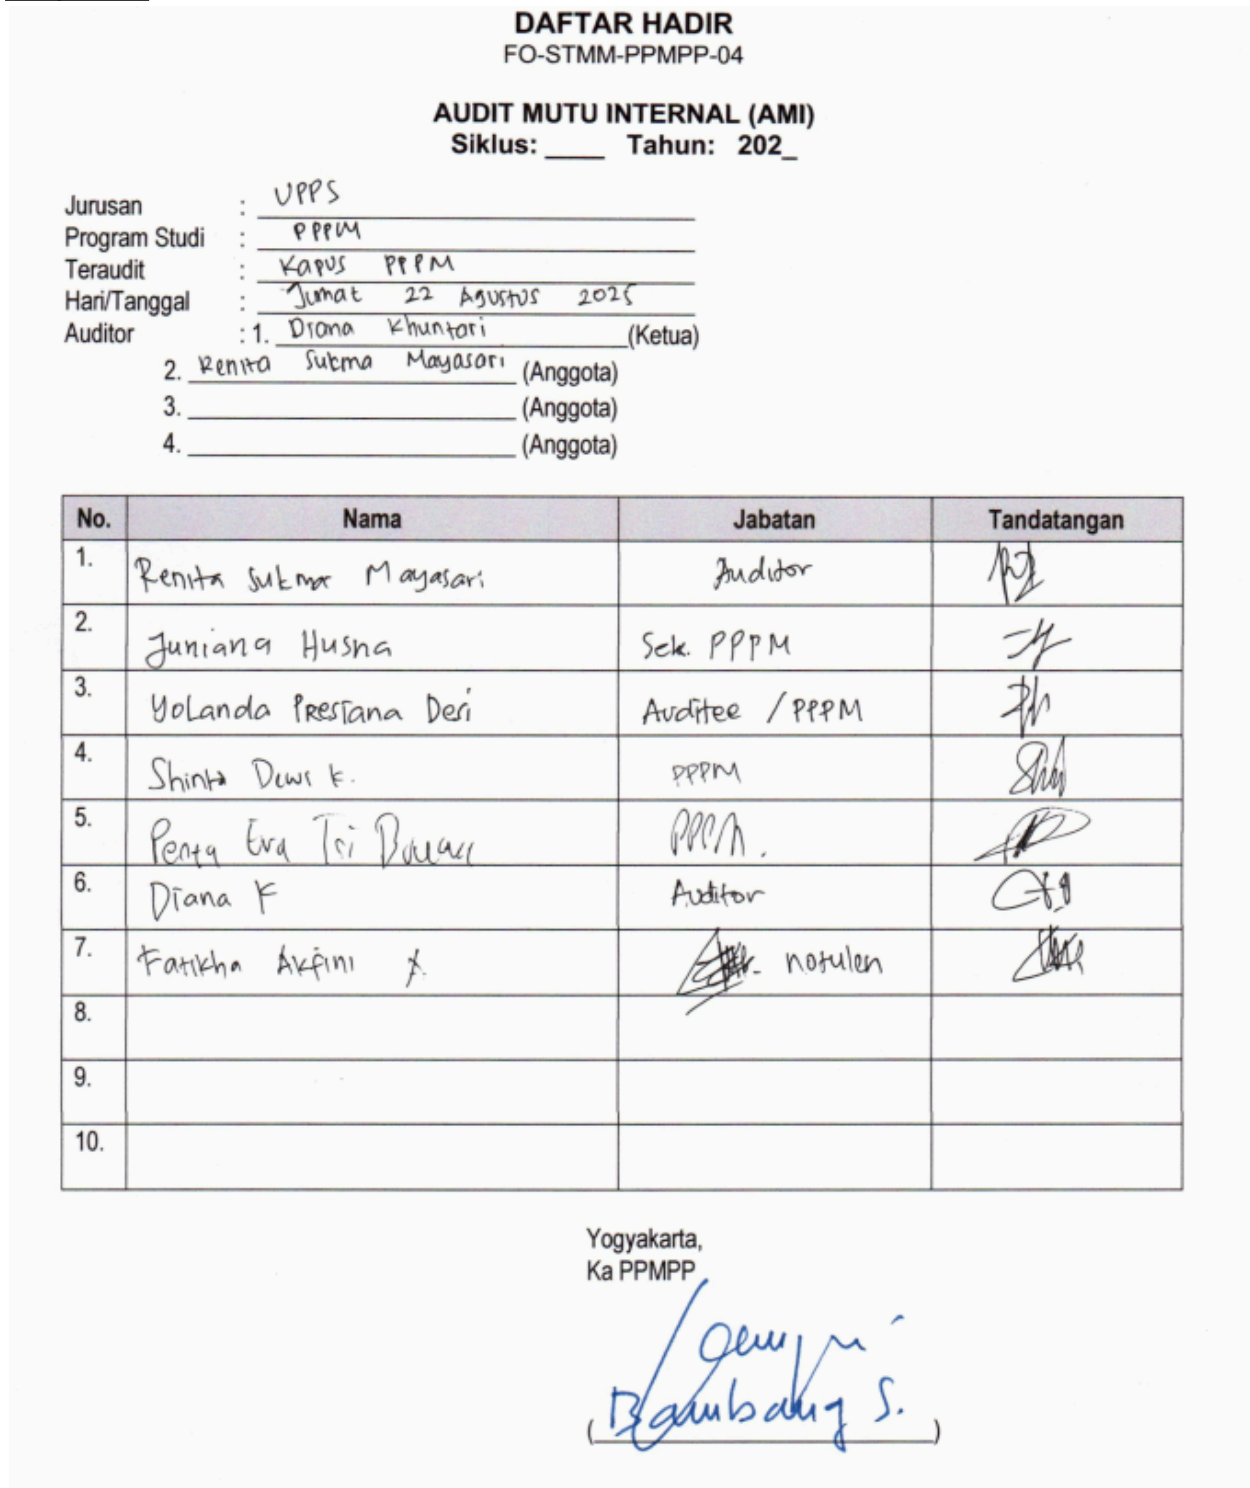 DAFTAR HADIR
FO-STMM-PPMPP-04
AUDIT MUTU INTERNAL (AMI)
Siklus: ____ Tahun: 202_
Jurusan : UPPS
Program Studi : PPPM
Teraudit : Kapus PPPM
Hari/Tanggal : Jumat 22 Agustus 2025
Auditor : 1. Diana Khuntari (Ketua)
2. Renita Sukma Mayasari (Anggota)
3. ____ (Anggota)
4. ____ (Anggota)
No. Nama Jabatan Tandatangan
1. Renita Sukma Mayasari Auditor
2. Juniana Husna Sek. PPPM
3. Yolanda Presiana Desi Auditee / PPPM
4. Shinta Dewi K. PPPM
5. Penta Eva Tri PPPM.
6. Diana K Auditor
7. Fatikha Akfini notulen
8.
9.
10.
Yogyakarta,
Ka PPMPP
(Bambang S.)